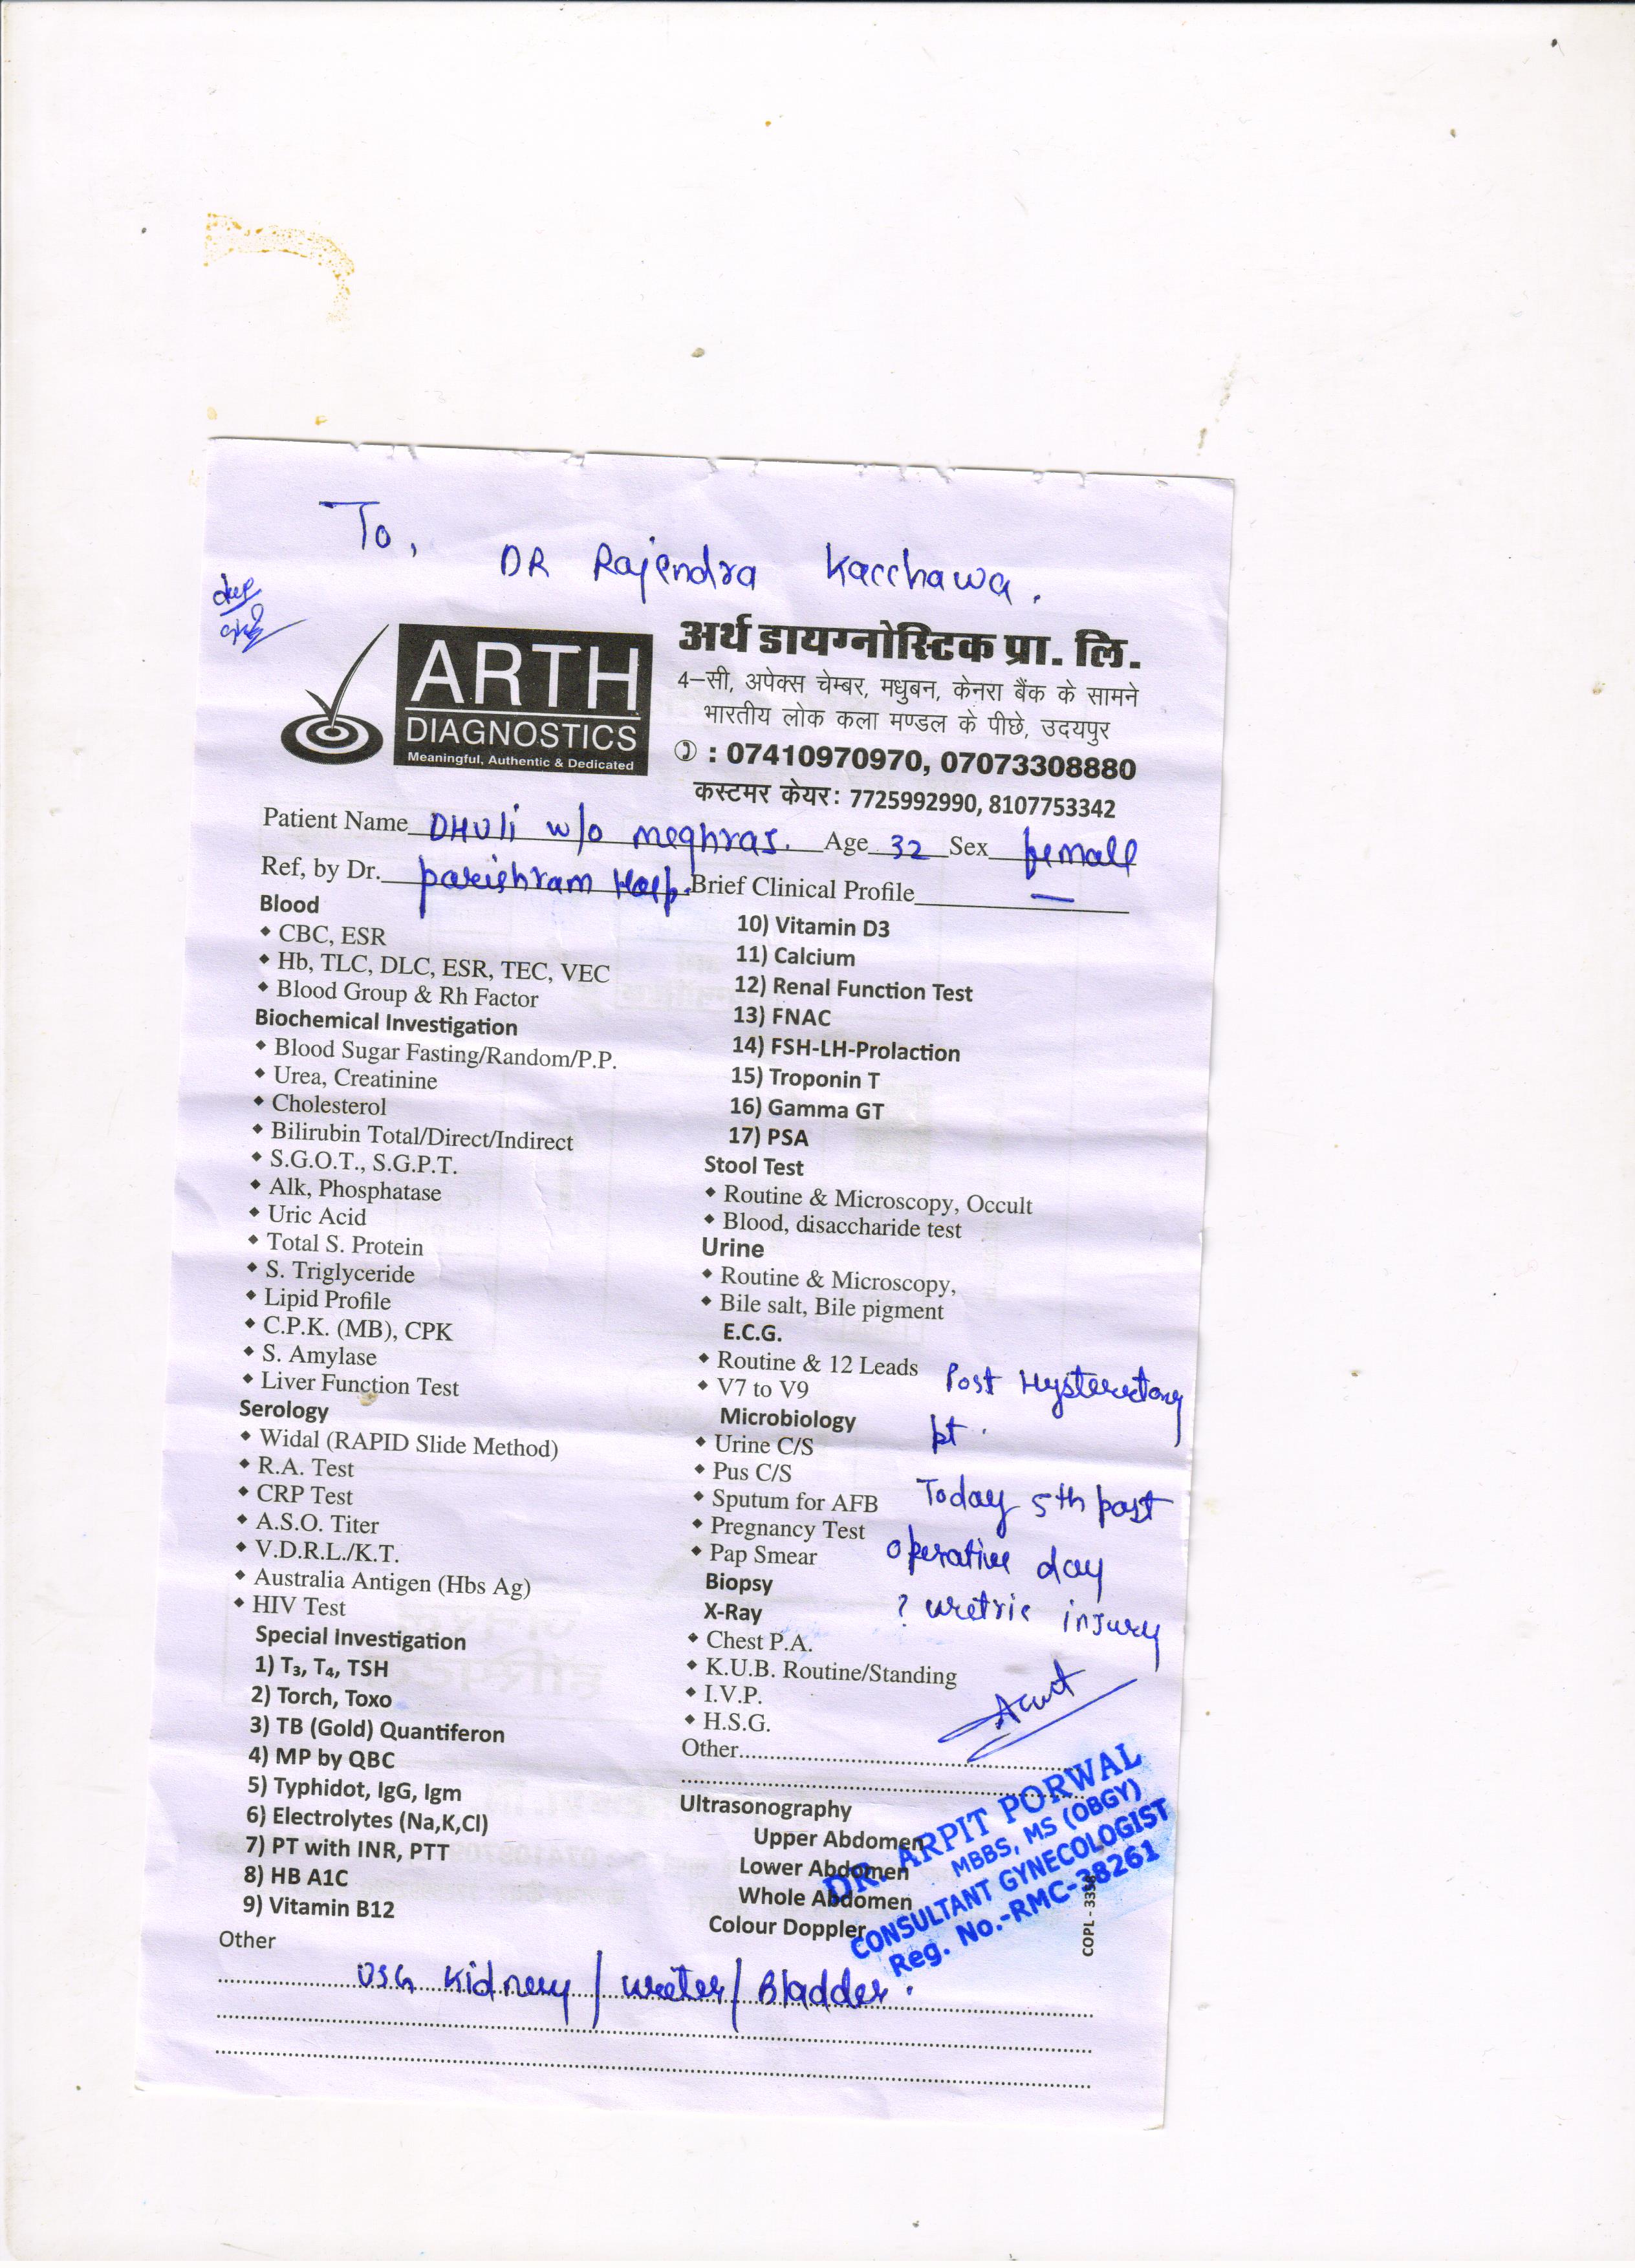 To,
DR Rajendra Kacchawa.
ARTH
DIAGNOSTICS
Meaningful, Authentic & Dedicated
अर्थ डायग्नोस्टिक प्रा. लि.
4-सी, अपेक्स चेम्बर, मधुबन, केनरा बैंक के सामने
भारतीय लोक कला मण्डल के पीछे, उदयपुर
: 07410970970, 07073308880
कस्टमर केयर: 7725992990, 8107753342
Patient Name DHUli w/o meghraj. Age 32 Sex female
Ref, by Dr. parishram Hosp. Brief Clinical Profile —
Blood
CBC, ESR
Hb, TLC, DLC, ESR, TEC, VEC
Blood Group & Rh Factor
Biochemical Investigation
Blood Sugar Fasting/Random/P.P.
Urea, Creatinine
Cholesterol
Bilirubin Total/Direct/Indirect
S.G.O.T., S.G.P.T.
Alk, Phosphatase
Uric Acid
Total S. Protein
S. Triglyceride
Lipid Profile
C.P.K. (MB), CPK
S. Amylase
Liver Function Test
Serology
Widal (RAPID Slide Method)
R.A. Test
CRP Test
A.S.O. Titer
V.D.R.L./K.T.
Australia Antigen (Hbs Ag)
HIV Test
Special Investigation
1) T₃, T₄, TSH
2) Torch, Toxo
3) TB (Gold) Quantiferon
4) MP by QBC
5) Typhidot, IgG, Igm
6) Electrolytes (Na,K,Cl)
7) PT with INR, PTT
8) HB A1C
9) Vitamin B12
10) Vitamin D3
11) Calcium
12) Renal Function Test
13) FNAC
14) FSH-LH-Prolaction
15) Troponin T
16) Gamma GT
17) PSA
Stool Test
Routine & Microscopy, Occult
Blood, disaccharide test
Urine
Routine & Microscopy,
Bile salt, Bile pigment
E.C.G.
Routine & 12 Leads
V7 to V9
Microbiology
Urine C/S
Pus C/S
Sputum for AFB
Pregnancy Test
Pap Smear
Biopsy
X-Ray
Chest P.A.
K.U.B. Routine/Standing
I.V.P.
H.S.G.
Other
Post Hysterectomy
pt.
Today 5th post
operative day
? uretric injury
Ultrasonography
Upper Abdomen
Lower Abdomen
Whole Abdomen
Colour Doppler
DR. ARPIT PORWAL
MBBS, MS (OBGY)
CONSULTANT GYNECOLOGIST
Reg. No.-RMC-38261
Other
USG Kidney / ureter / Bladder.